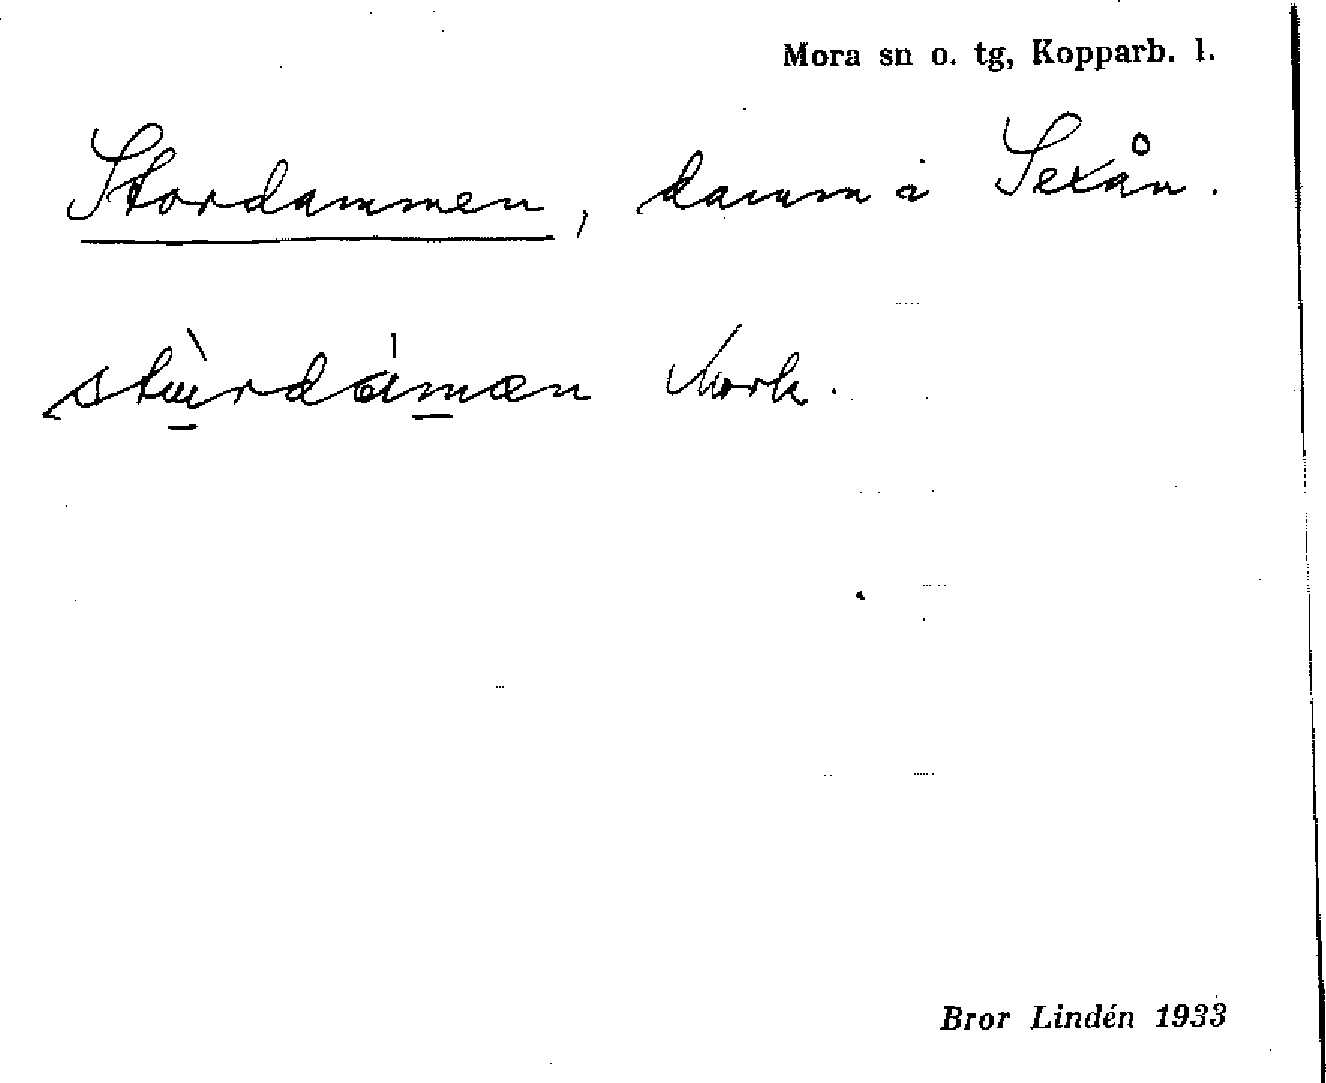 Mora sn o. tg, Kopparb. l.
Stordammen, damm i Sexån.
stùrdámæn Nork.
Bror Lindén 1933